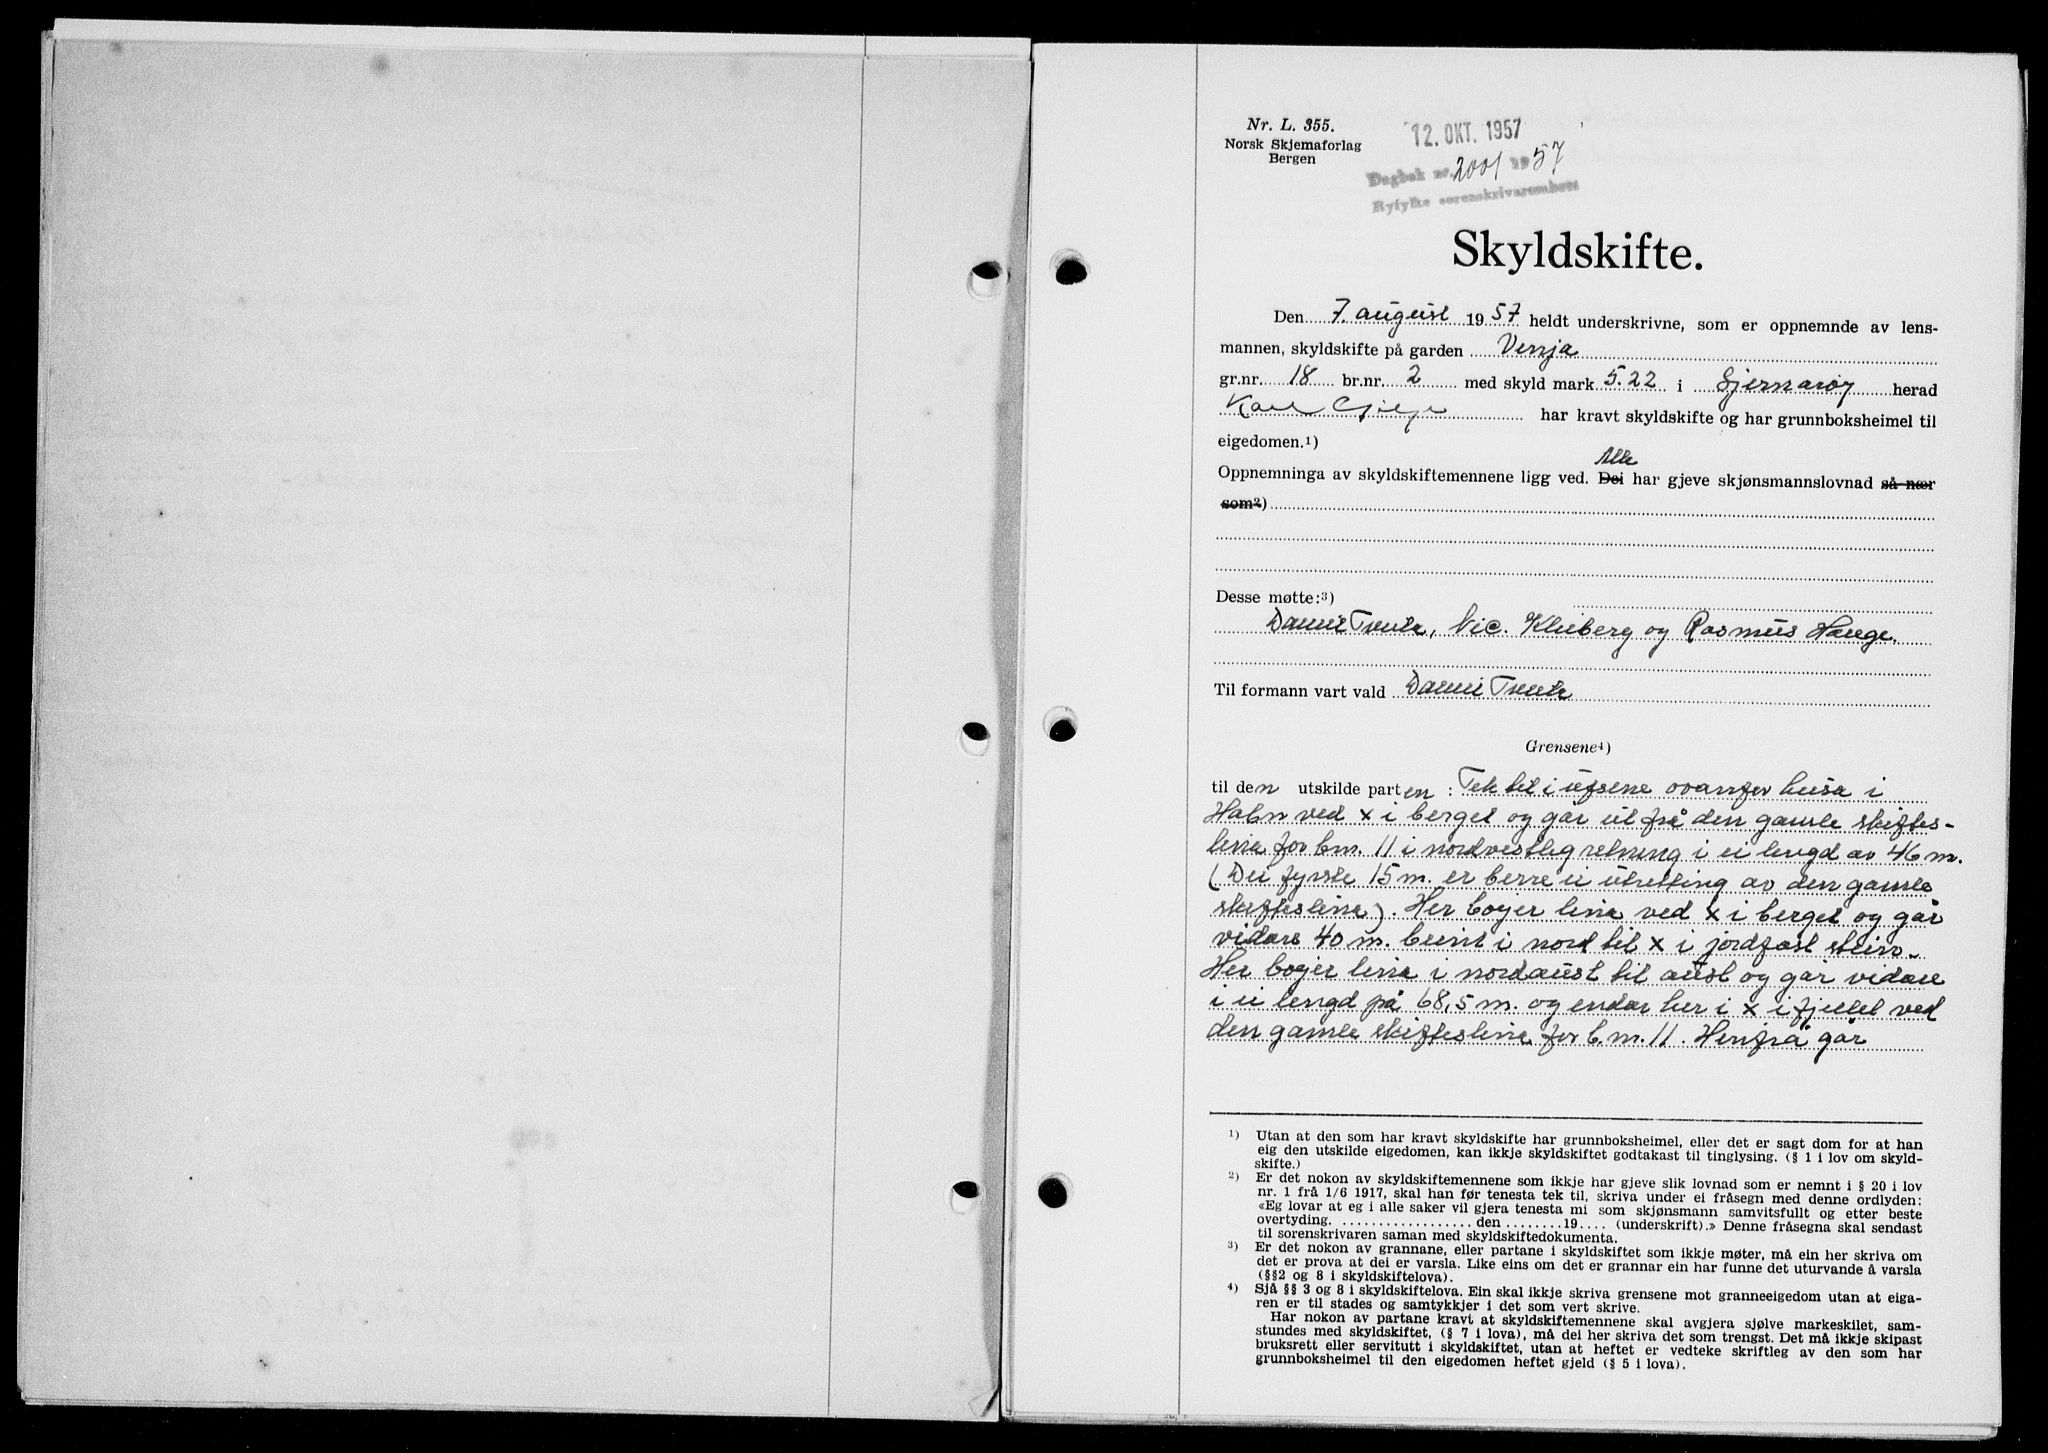 Nr. L. 355.
Norsk Skjemaforlag
Bergen
12. OKT. 1957
Dagbok nr. 2001 1957
Ryfylke sorenskrivarembett
Skyldskifte.
Den 7. august 1957 heldt underskrivne, som er oppnemnde av lens-
mannen, skyldskifte på garden Venja
gr.nr. 18 br.nr. 2 med skyld mark 5.22 i Sjernarøy herad
Karl Gilje har kravt skyldskifte og har grunnboksheimel til
eigedomen.1)
Alle
Oppnemninga av skyldskiftemennene ligg ved. Dei har gjeve skjønsmannslovnad så nær
som2)
Desse møtte:3)
Nic. Kleiberg og Rasmus Hauge.
Til formann vart vald
Grensene4)
til den utskilde parten: Tek til i ufsene ovanfor husa i
ved x i berget og går ut frå den gamle skiftes-
lina for b.nr. 11 i nordvestleg retning i ei lengd av 46 m.
(Dei fyrste 15 m. er berre ei utretting av den gamle
skifteslina). Her bøyer lina ved x i berget og går
vidare 40 m. beint i nord til x i jordfast stein.
Her bøyer lina i nordaust til aust og går vidare
i ei lengd på 68,5 m. og endar her i x i fjellet ved
den gamle skifteslina for b.nr. 11. Herifrå går
1) Utan at den som har kravt skyldskifte har grunnboksheimel, eller det er sagt dom for at han
eig den utskilde eigedomen, kan ikkje skyldskiftet godtakast til tinglysing. (§ 1 i lov om skyld-
skifte.)
2) Er det nokon av skyldskiftemennene som ikkje har gjeve slik lovnad som er nemnt i § 20 i lov
nr. 1 frå 1/6 1917, skal han før tenesta tek til, skriva under ei fråsegn med denne ordlyden:
«Eg lovar at eg i alle saker vil gjera tenesta mi som skjønsmann samvitsfullt og etter beste
overtyding. .................. den ........19.... (underskrift).» Denne fråsegna skal sendast
til sorenskrivaren saman med skyldskiftedokumenta.
3) Er det nokon av grannane, eller partane i skyldskiftet som ikkje møter, må ein her skriva om
det er prova at dei er varsla. Like eins om det er grannar ein har funne det uturvande å varsla
(§§2 og 8 i skyldskiftelova).
4) Sjå §§ 3 og 8 i skyldskiftelova. Ein skal ikkje skriva grensene mot granneeigedom utan at eiga-
ren er til stades og samtykkjer i det som vert skrive.
Har nokon av partane kravt at skyldskiftemennene skal avgjera sjølve markeskilet, sam-
stundes med skyldskiftet, (§ 7 i lova), må dei her skriva det som trengst. Det må ikkje skipast
bruksrett eller servitutt i skyldskiftet, utan at heftet er vedteke skriftleg av den som har
grunnboksheimel til den eigedomen heftet gjeld (§ 5 i lova).